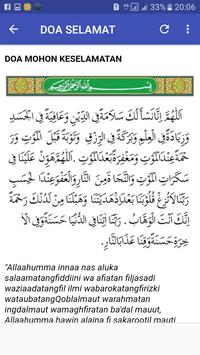 20:06
DOA SELAMAT
DOA MOHON KESELAMATAN
بسم الله الرحمن الرحيم
اَللّٰهُمَّ اِنَّا نَسْأَلُكَ سَلَامَةً فِى الدِّيْنِ وَعَافِيَةً فِى الْجَسَدِ
وَزِيَادَةً فِى الْعِلْمِ وَبَرَكَةً فِى الرِّزْقِ وَتَوْبَةً قَبْلَ الْمَوْتِ وَرَ
حْمَةً عِنْدَ الْمَوْتِ وَمَغْفِرَةً بَعْدَ الْمَوْتِ. اَللّٰهُمَّ هَوِّنْ عَلَيْنَا فِى
سَكَرَاتِ الْمَوْتِ وَالنَّجَاةَ مِنَ النَّارِ وَالْعَفْوَ عِنْدَ الْحِسَا
بِ رَبَّنَا لَا تُزِغْ قُلُوْبَنَا بَعْدَ اِذْ هَدَيْتَنَا وَهَبْ لَنَا مِنْ لَدُنْكَ رَحْمَةً
اِنَّكَ اَنْتَ الْوَهَّابُ. رَبَّنَا اٰتِنَا فِى الدُّنْيَا حَسَنَةً وَّفِى الْاٰ
خِرَةِ حَسَنَةً وَّقِنَا عَذَابَ النَّارِ.
"Allaahumma innaa nas aluka
salaamatangfiddiini wa afiatan filjasadi
waziaadatangfil ilmi wabarokatangfirizki
wataubatangQoblalmaut warahmatan
ingdalmaut wamaghfiratan ba'dal maut,
Allaahumma hawin alaina fi sakarootil mauti